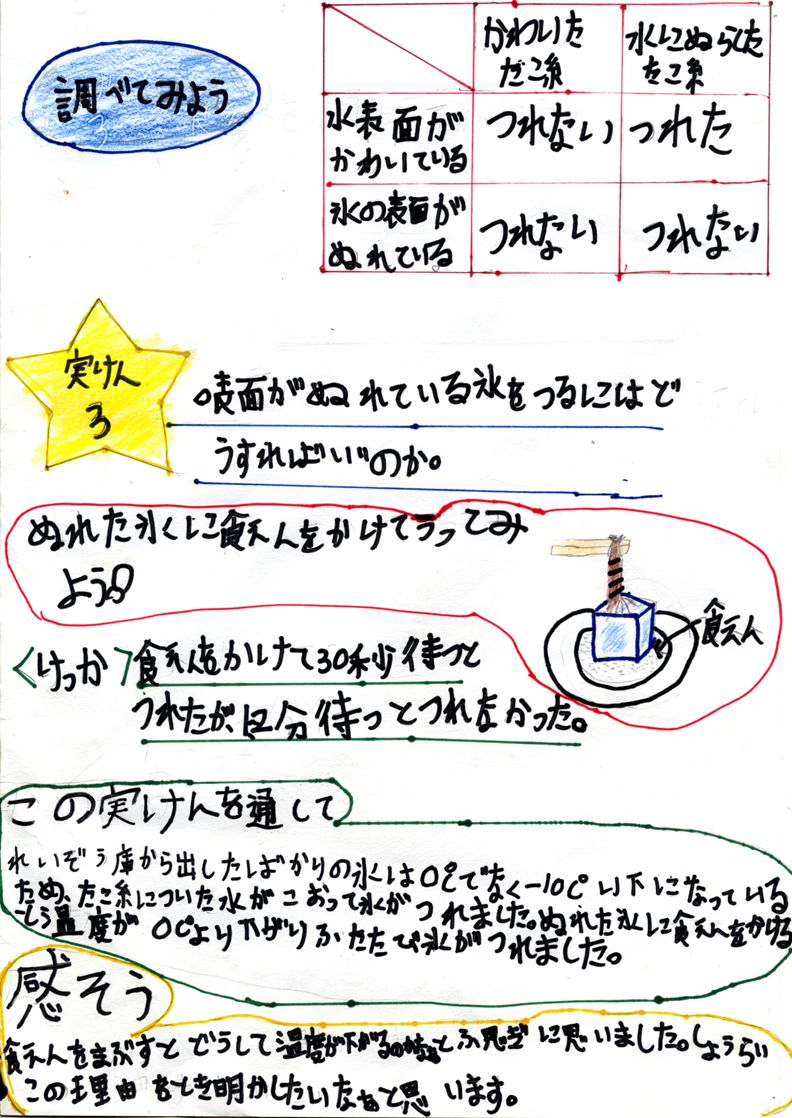 調べてみよう
かわいた
だこ糸
水にぬらした
たこ糸
氷表面が
かわいている
つれない
つれた
氷の表面が
ぬれている
つれない
つれない
実けん
3
表面がぬれている氷をつるにはど
うすればいいのか。
ぬれた氷に食えんをかけてつってみ
よう
食えん
〈けっか〉食えんをかけて30秒待つと
つれたが、5分待つとつれなかった。
この実けんを通して
れいぞう庫から出したばかりの氷は0℃でなく-10℃以下になっている
ため、たこ糸についた水がこおって氷がつれました。ぬれた氷に食えんをかける
と温度が0℃より下がりふたたび氷がつれました。
感そう
食えんをまぶすとどうして温度が下がるのかなぁとふ思ぎに思いました。しょうらい
この理由をとき明かしたいなぁと思います。